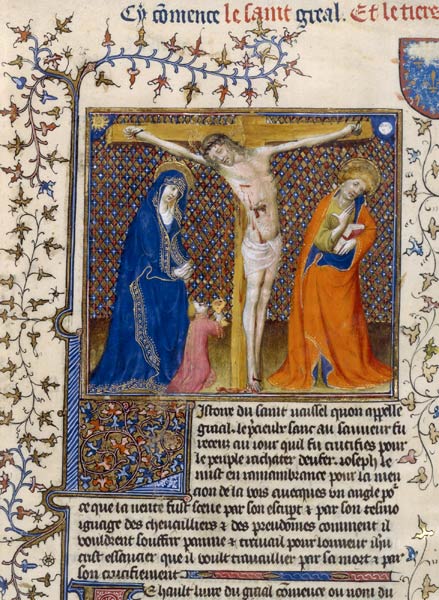 Cy cōmence le saint greal. Et le tiers
Istoire du saint vaissel quon appelle
graal. le precieulx sanc au sauveur fu
receu au iour quil fu crucifies pour
le peuple rachater denfer. Joseph le
mist en ramambrance par la men
cion de la vois avecques un angle po'
ce que la verite fust sceue par son escript & par son tesmo
ignage des chevailliers & des preudōmes cōmment il
vouldrent souffrir painne & travail pour lonneur ihu
crist essaucier que il voult travaillier par sa mort & par
son crucefiement
E hault livre du graal cōmence ou nom du